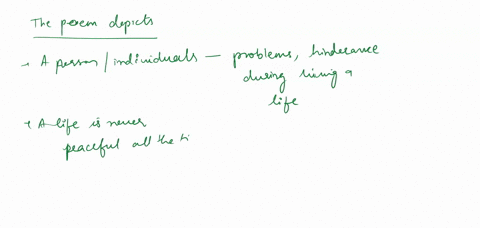 The poem depicts
→ A person/individuals — problems, hinderance
during living a
life
→ A life is never
peaceful all the ti